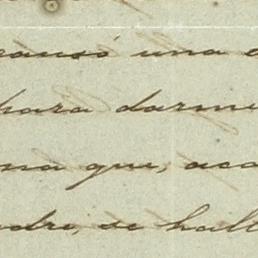 causó una
para darme
na que, aca
adre, se hall